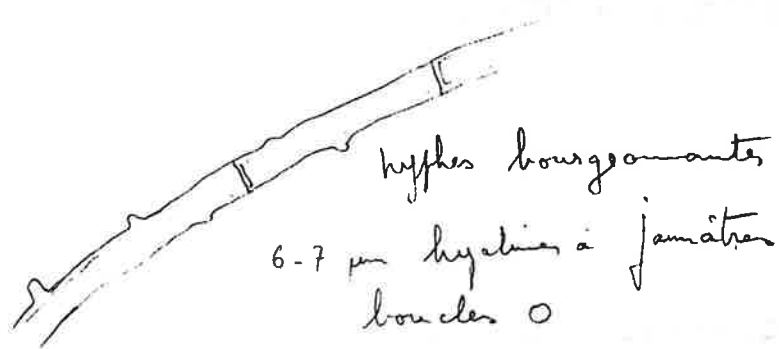 hyphes bourgeonnantes
6-7 µm hyalines à jaunâtres
boucles 0